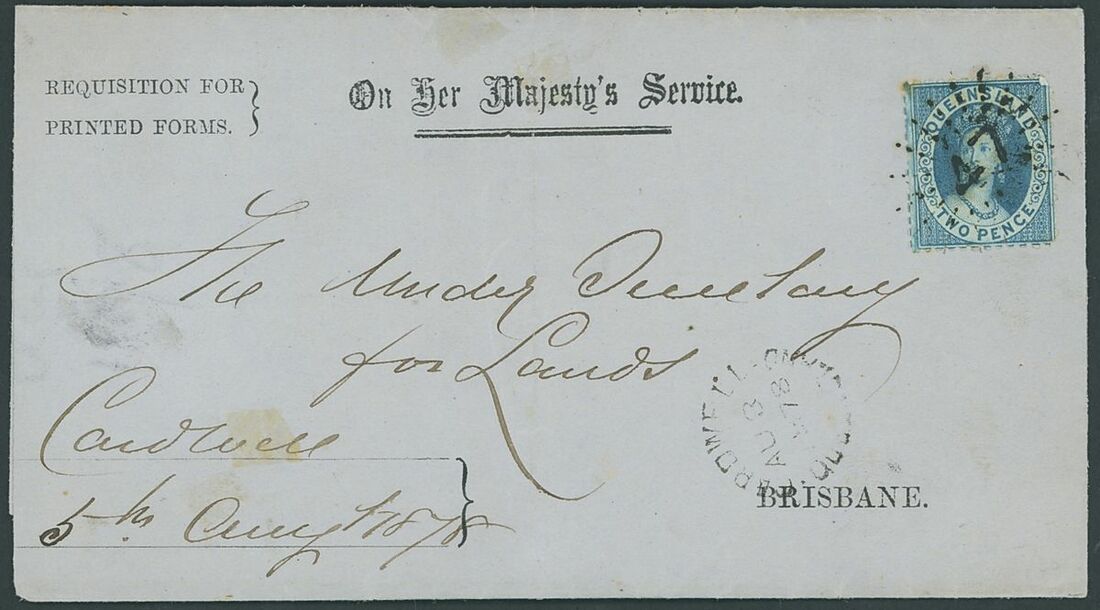 REQUISITION FOR
PRINTED FORMS.
On Her Majesty's Service.
QUEENSLAND
TWO PENCE
The Under Secretary
for Lands
Cardwell
5th Augst 1878
BRISBANE.
CARDWELL
AU
QUEENSLAND